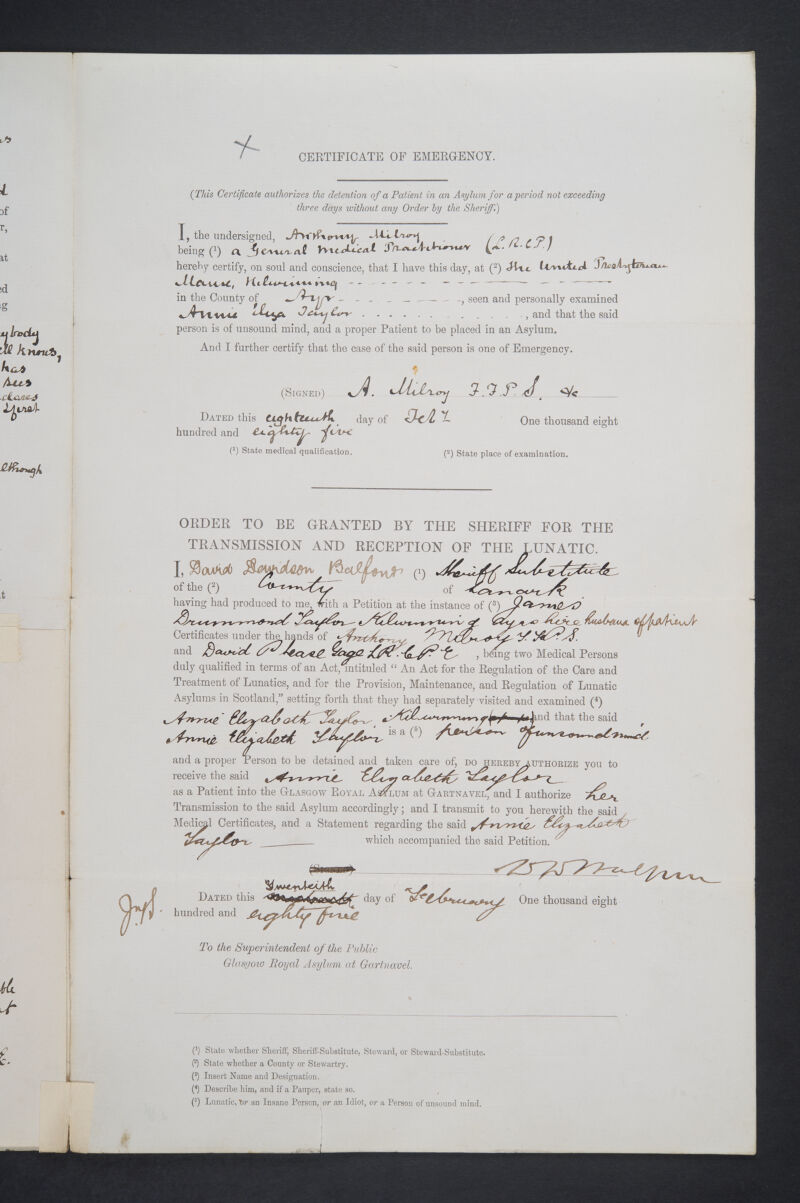 of
r,
at
ed
g
ybody
ell knows,
has
sees
clares
though
t
ble
CERTIFICATE OF EMERGENCY.
(This Certificate authorizes the detention of a Patient in an Asylum for a period not exceeding
three days without any Order by the Sheriff.)
I, the undersigned, Anthony Milroy
being (1) a General Medical Practitioner (L.R.C.P.)
hereby certify, on soul and conscience, that I have this day, at (2) The United Presbyterian
Manse, Kilwinning
in the County of Ayr, seen and personally examined
Annie Eliza Taylor, and that the said
person is of unsound mind, and a proper Patient to be placed in an Asylum.
And I further certify that the case of the said person is one of Emergency.
(Signed) A. Milroy F.F.P.S. &c
Dated this eighteenth day of Feby One thousand eight
hundred and eighty five
(1) State medical qualification. (2) State place of examination.
ORDER TO BE GRANTED BY THE SHERIFF FOR THE
TRANSMISSION AND RECEPTION OF THE LUNATIC.
I, David Davidson Balfour (1) Sheriff Substitute
of the (2) County of Lanark
having had produced to me, with a Petition at the instance of (3) James
Drummond Taylor Kilwinning Ayrshire husband of patient
Certificates under the hands of Anthony Milroy F.F.P.S.
and David Pleace Gage L.R.C.P.E, being two Medical Persons
duly qualified in terms of an Act, intituled "An Act for the Regulation of the Care and
Treatment of Lunatics, and for the Provision, Maintenance, and Regulation of Lunatic
Asylums in Scotland," setting forth that they had separately visited and examined (4)
Annie Elizabeth Taylor, Kilwinning and that the said
Annie Elizabeth Taylor is a (5) person of unsound mind
and a proper Person to be detained and taken care of, DO HEREBY AUTHORIZE you to
receive the said Annie Elizabeth Taylor
as a Patient into the Glasgow Royal Asylum at Gartnavel, and I authorize her
Transmission to the said Asylum accordingly; and I transmit to you herewith the said
Medical Certificates, and a Statement regarding the said Annie Elizabeth
Taylor which accompanied the said Petition.
D D Balfour
Twentieth
Dated this day of February One thousand eight
hundred and eighty five
To the Superintendent of the Public
Glasgow Royal Asylum at Gartnavel.
(1) State whether Sheriff, Sheriff-Substitute, Steward, or Steward-Substitute.
(2) State whether a County or Stewartry.
(3) Insert Name and Designation.
(4) Describe him, and if a Pauper, state so.
(5) Lunatic, or an Insane Person, or an Idiot, or a Person of unsound mind.